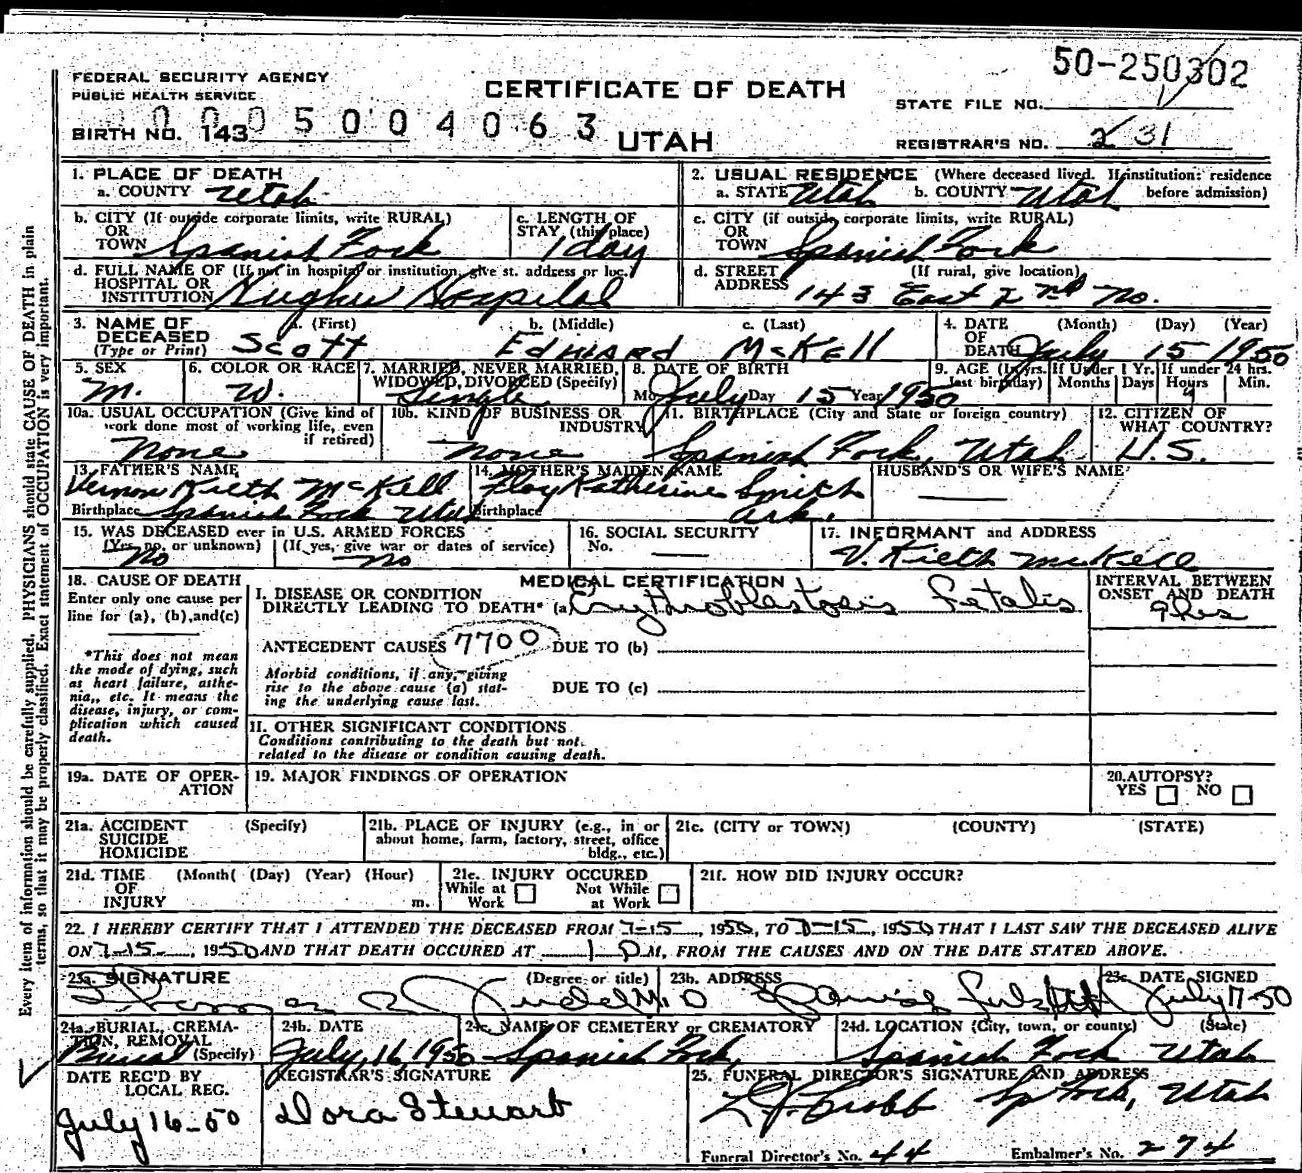 50-250302
FEDERAL SECURITY AGENCY
PUBLIC HEALTH SERVICE
CERTIFICATE OF DEATH
STATE FILE NO.
BIRTH NO. 143
0005004063
UTAH
REGISTRAR'S NO. 231
Every item of information should be carefully supplied. PHYSICIANS should state CAUSE OF DEATH in plain
terms, so that it may be properly classified. Exact statement of OCCUPATION is very important.
1. PLACE OF DEATH
a. COUNTY Utah
2. USUAL RESIDENCE (Where deceased lived. If institution: residence
a. STATE Utah b. COUNTY Utah before admission)
b. CITY (If outside corporate limits, write RURAL)
OR
TOWN Spanish Fork
c. LENGTH OF
STAY, (this place)
1 day
c. CITY (if outside corporate limits, write RURAL)
OR
TOWN Spanish Fork
d. FULL NAME OF (If not in hospital or institution, give st. address or loc.)
HOSPITAL OR
INSTITUTION Hughes Hospital
d. STREET (If rural, give location)
ADDRESS 143 East 2nd No.
3. NAME OF DECEASED
(Type or Print)
a. (First) b. (Middle) c. (Last)
Scott Edward McKell
4. DATE OF DEATH (Month) (Day) (Year)
July 15 1950
5. SEX
M.
6. COLOR OR RACE
W.
7. MARRIED, NEVER MARRIED,
WIDOWED, DIVORCED (Specify)
Single
8. DATE OF BIRTH
Mo. July Day 15 Year 1950
9. AGE (In yrs. last birthday) If Under 1 Yr. If under 24 hrs.
Months Days Hours Min.
9
10a. USUAL OCCUPATION (Give kind of
work done most of working life, even
if retired)
None
10b. KIND OF BUSINESS OR
INDUSTRY
None
11. BIRTHPLACE (City and State or foreign country)
Spanish Fork, Utah
12. CITIZEN OF
WHAT COUNTRY?
U.S.
13. FATHER'S NAME
Vernon Kieth McKell
Birthplace Spanish Fork Utah
14. MOTHER'S MAIDEN NAME
Floy Katherine Smith
Birthplace Ark.
HUSBAND'S OR WIFE'S NAME
15. WAS DECEASED ever in U.S. ARMED FORCES
(Yes, no, or unknown) (If yes, give war or dates of service)
No No
16. SOCIAL SECURITY
No.
17. INFORMANT and ADDRESS
V. Kieth McKell
18. CAUSE OF DEATH
Enter only one cause per
line for (a), (b), and (c)
*This does not mean
the mode of dying, such
as heart failure, asthe-
nia,, etc. It means the
disease, injury, or com-
plication which caused
death.
MEDICAL CERTIFICATION
I. DISEASE OR CONDITION
DIRECTLY LEADING TO DEATH* (a) Erythroblastosis Fetalis
ANTECEDENT CAUSES 7700 DUE TO (b)
Morbid conditions, if any, giving
rise to the above cause (a) stat-
ing the underlying cause last.
DUE TO (c)
II. OTHER SIGNIFICANT CONDITIONS
Conditions contributing to the death but not
related to the disease or condition causing death.
INTERVAL BETWEEN
ONSET AND DEATH
9 hrs
19a. DATE OF OPER-
ATION
19. MAJOR FINDINGS OF OPERATION
20. AUTOPSY?
YES NO
21a. ACCIDENT (Specify)
SUICIDE
HOMICIDE
21b. PLACE OF INJURY (e.g., in or
about home, farm, factory, street, office
bldg., etc.)
21c. (CITY or TOWN) (COUNTY) (STATE)
21d. TIME (Month( (Day) (Year) (Hour)
OF
INJURY m.
21e. INJURY OCCURED
While at Work Not While at Work
21f. HOW DID INJURY OCCUR?
22. I HEREBY CERTIFY THAT I ATTENDED THE DECEASED FROM 7-15, 1950, TO 7-15, 1950 THAT I LAST SAW THE DECEASED ALIVE
ON 7-15, 1950 AND THAT DEATH OCCURED AT 1 P M, FROM THE CAUSES AND ON THE DATE STATED ABOVE.
23a. SIGNATURE (Degree or title)
M.D
23b. ADDRESS
Spanish Fork Utah
23c. DATE SIGNED
July 17-50
24a. BURIAL, CREMA-
TION, REMOVAL
(Specify)
Burial
24b. DATE
July 16 1950
24c. NAME OF CEMETERY or CREMATORY
Spanish Fork
24d. LOCATION (City, town, or county) (State)
Spanish Fork Utah
DATE REC'D BY
LOCAL REG.
July 16-50
REGISTRAR'S SIGNATURE
Dora Stewart
25. FUNERAL DIRECTOR'S SIGNATURE AND ADDRESS
Sp Fork, Utah
Funeral Director's No. 44 Embalmer's No. 274